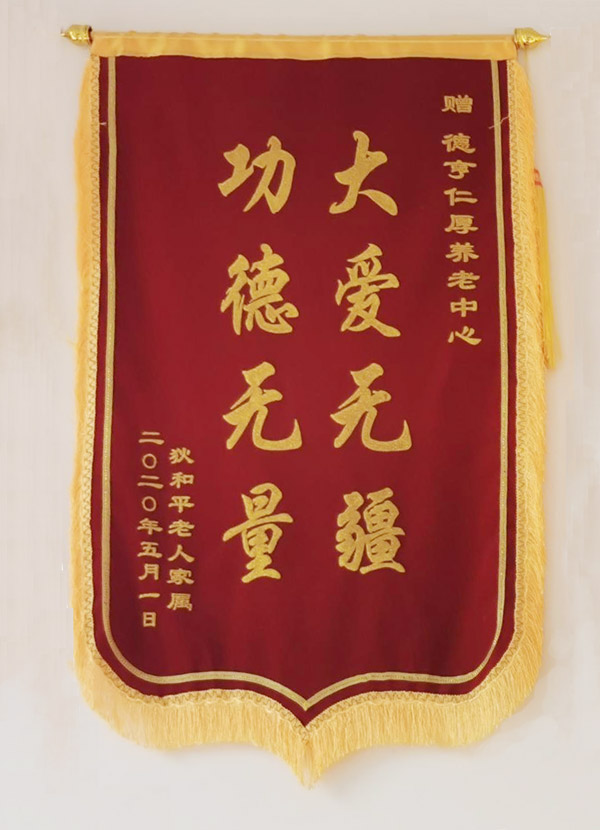 赠 德亨仁厚养老中心
大爱无疆
功德无量
狄和平老人家属
二〇二〇年五月一日